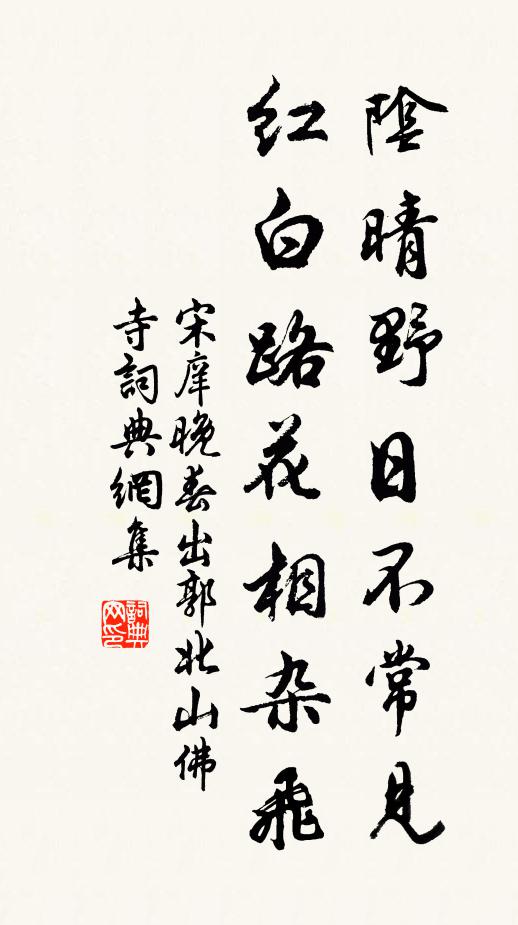 陰晴野日不常見
紅白路花相杂飛
宋庠晚春出郭北山佛
寺詞典網集
詞典
网印